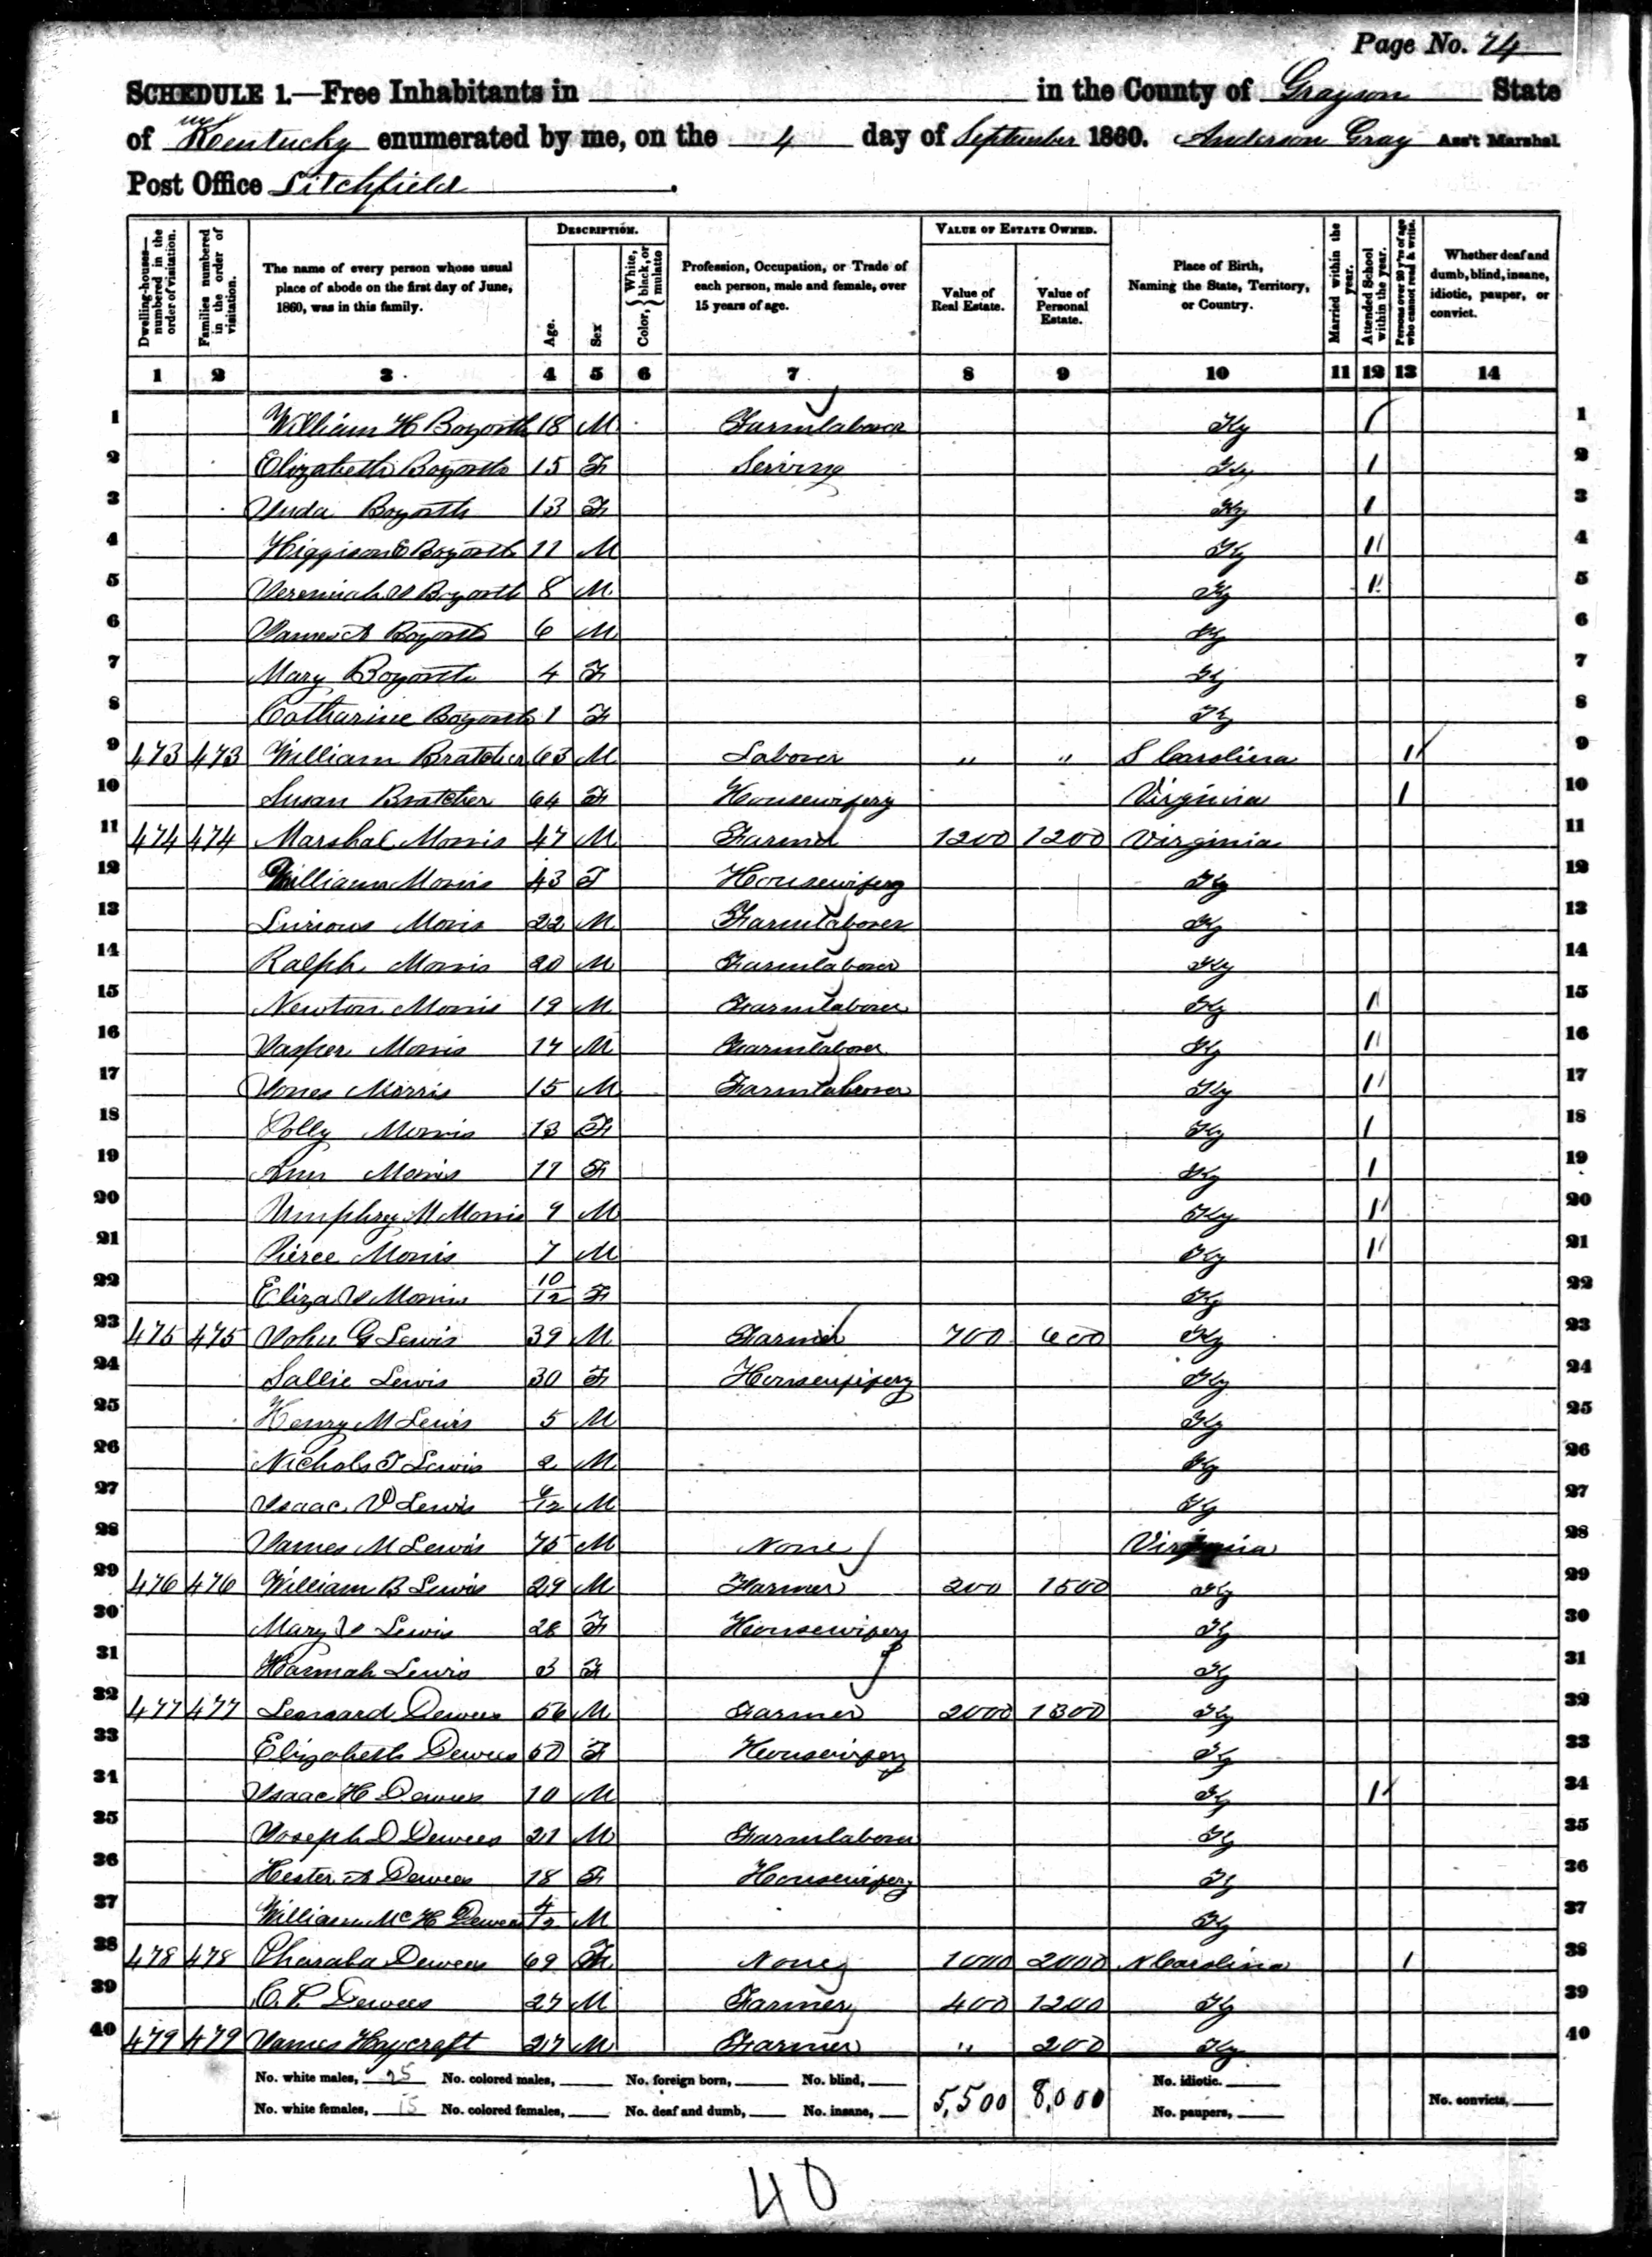 Page No. 74
SCHEDULE 1.—Free Inhabitants in in the County of Grayson State
of Kentucky enumerated by me, on the 4 day of September 1860. Anderson Gray Ass't Marshal.
Post Office Litchfield.
Dwelling-houses—numbered in the order of visitation.
Families numbered in the order of visitation.
The name of every person whose usual place of abode on the first day of June, 1860, was in this family.
DESCRIPTION.
Age.
Sex
Color, { White, black, or mulatto
Profession, Occupation, or Trade of each person, male and female, over 15 years of age.
VALUE OF ESTATE OWNED.
Value of Real Estate.
Value of Personal Estate.
Place of Birth, Naming the State, Territory, or Country.
Married within the year.
Attended School within the year.
Persons over 20 y'rs of age who cannot read & write.
Whether deaf and dumb, blind, insane, idiotic, pauper, or convict.
1 2 3 4 5 6 7 8 9 10 11 12 13 14
1 William H Bozorth 18 M Farmlaborer Ky / 1
2 Elizabeth Bozorth 15 F Serving Ky 1 2
3 Bozorth 13 F Ky 1 3
4 Bozorth 11 M Ky 11 4
5 Jeremiah Bozorth 8 M Ky 11 5
6 James A Bozorth 6 M Ky 6
7 Mary Bozorth 4 F Ky 7
8 Catharine Bozorth 1 F Ky 8
9 473 473 William Bratcher 63 M Laborer " " S Carolina 11 9
10 Susan Bratcher 64 F Housewifery Virginia 1 10
11 474 474 Marshal Morris 47 M Farmer 1200 1200 Virginia 11
12 William Morris 43 F Housewifery Ky 12
13 Morris 22 M Farmlaborer Ky 13
14 Ralph Morris 20 M Farmlaborer Ky 14
15 Newton Morris 19 M Farmlaborer Ky 11 15
16 Jasper Morris 17 M Farmlaborer Ky 11 16
17 Jones Morris 15 M Farmlaborer Ky 11 17
18 Polly Morris 13 F Ky 1 18
19 Ann Morris 11 F Ky 1 19
20 Umphrey M Morris 9 M Ky 11 20
21 Pierce Morris 7 M Ky 11 21
22 Eliza J Morris 10/12 F Ky 22
23 475 475 John G Lewis 39 M Farmer 700 600 Ky 23
24 Sallie Lewis 30 F Housewifery Ky 24
25 Henry M Lewis 5 M Ky 25
26 Nichols T Lewis 2 M Ky 26
27 Isaac Lewis 9/12 M Ky 27
28 James M Lewis 75 M None Virginia 28
29 476 476 William B Lewis 29 M Farmer 200 1500 Ky 29
30 Mary J Lewis 28 F Housewifery Ky 30
31 Hannah Lewis 3 F Ky 31
32 477 477 Leonard Dewees 56 M Farmer 2000 1300 Ky 32
33 Elizabeth Dewees 50 F Housewifery Ky 33
34 Isaac H Dewees 10 M Ky 11 34
35 Joseph D Dewees 21 M Farmlaborer Ky 35
36 Hester A Dewees 18 F Housewifery Ky 36
37 William McH Dewees 4/12 M Ky 37
38 478 478 Pharaba Dewees 69 F None 1000 2000 N Carolina 1 38
39 C. P. Dewees 27 M Farmer 400 1200 Ky 39
40 479 479 James Haycraft 27 M Farmer " 200 Ky 40
No. white males, 25 No. colored males, No. foreign born, No. blind, 5,500 8,000 No. idiotic.
No. white females, 15 No. colored females, No. deaf and dumb, No. insane, No. paupers, No. convicts,
40